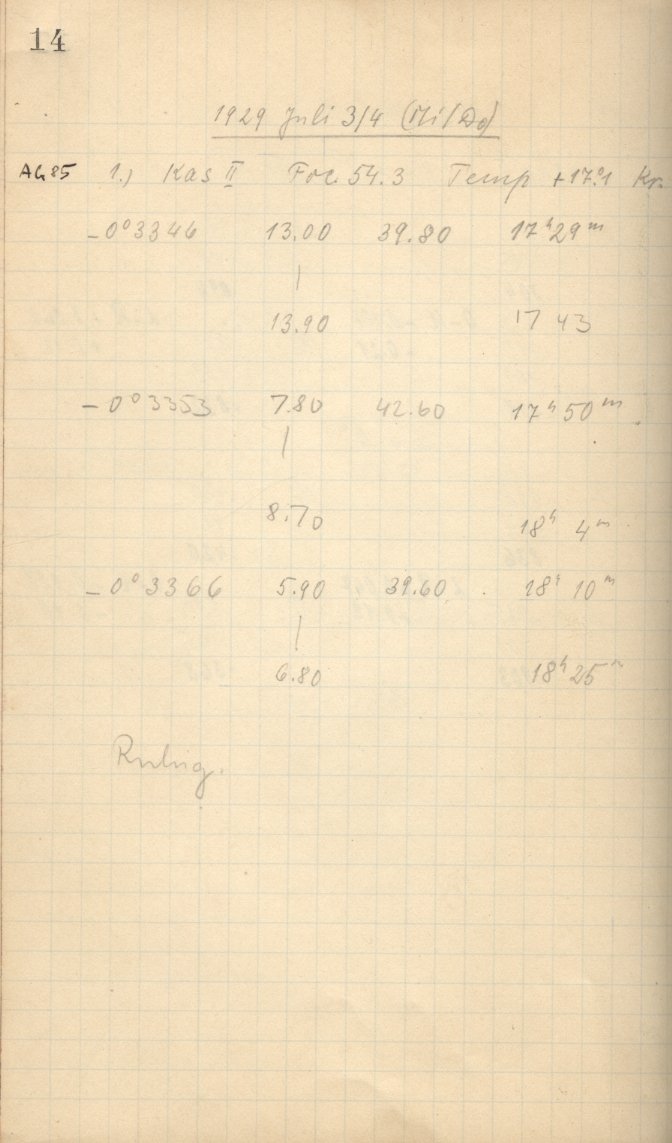 14
1929 Juli 3/4 (Mi/Do)
AG85 1.) Kas II Foc. 54.3 Temp +17°.1 Kr.
-0°3346 13.00 39.80 17ʰ29ᵐ
|
13.90 17 43
-0°3353 7.80 42.60 17ʰ50ᵐ.
|
8.70 18ʰ 4ᵐ
-0°3366 5.90 39.60 18ʰ 10ᵐ
|
6.80 18ʰ25ᵐ
Ruhig.